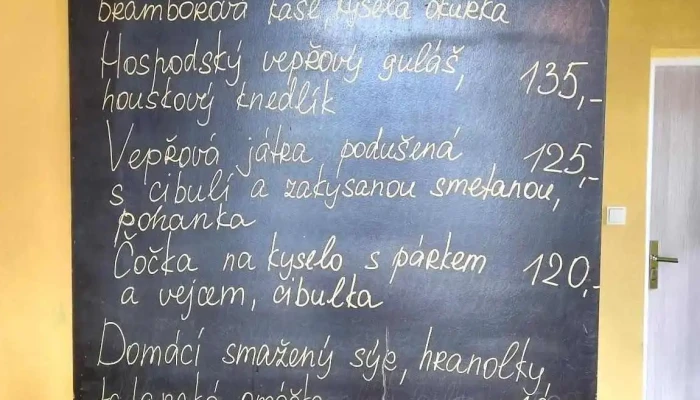 bramborová kaše, kyselá okurka
Hospodský vepřový guláš, 135,-
houskový knedlík
Vepřová játra podušená 125,-
s cibulí a zakysanou smetanou,
pohanka
Čočka na kyselo s párkem 120,-
a vejcem, cibulka
Domácí smažený sýr, hranolky,